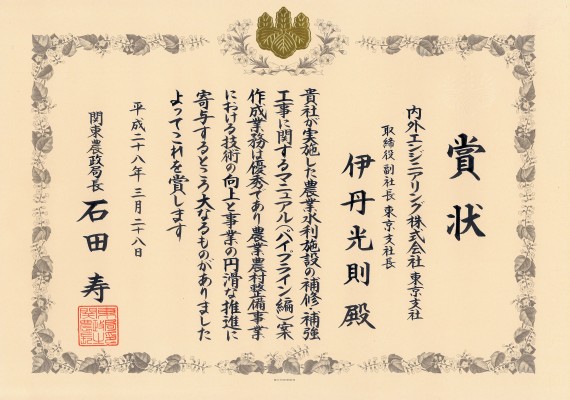 賞状
内外エンジニアリング株式会社 東京支社
取締役 副社長 東京支社長
伊丹光則 殿
貴社が実施した農業水利施設の補修・補強
工事に関するマニュアル(パイプライン編)案
作成業務は優秀であり農業農村整備事業
における技術の向上と事業の円滑な推進に
寄与するところ大なるものがありました
よってこれを賞します
平成二十八年 三月二十八日
関東農政局長
石田 寿